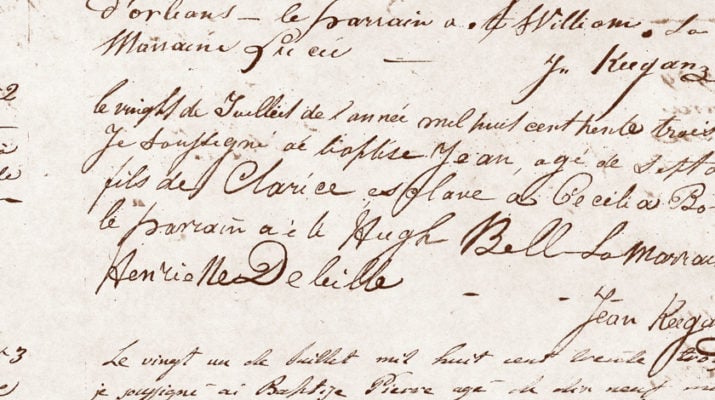 d'orleans - le parrain a. été William. La
Marraine Lucie —
Jn Keegan
2
le vinght de Juillet de l'année mil huit cent trente trois
Je soussigné ai baptise Jean, agé de
fils de Clarice esclave a Cecilia Bo
le parrain a été Hugh Bell La Marrai
Henriette Delille - -
Jean Keega
3
Le vingt un de Juillet mil huit cent trente tro
je soussigné ai Baptize Pierre agé de dix neuf m